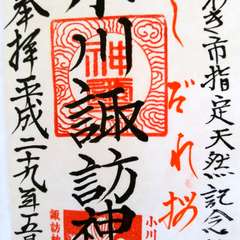 わき市指定天然記念
しだれ桜
小川諏訪神
奉拝平成二十九年五
小川
諏訪神